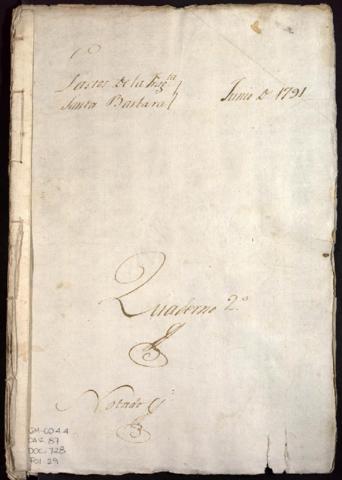 Gastos de la Frag.ta
Santa Barbara
Junio de 1791
Quaderno 2.º
Notado
GM-CO 4.4
CAJ. 87
DOC. 728
FOJ. 29